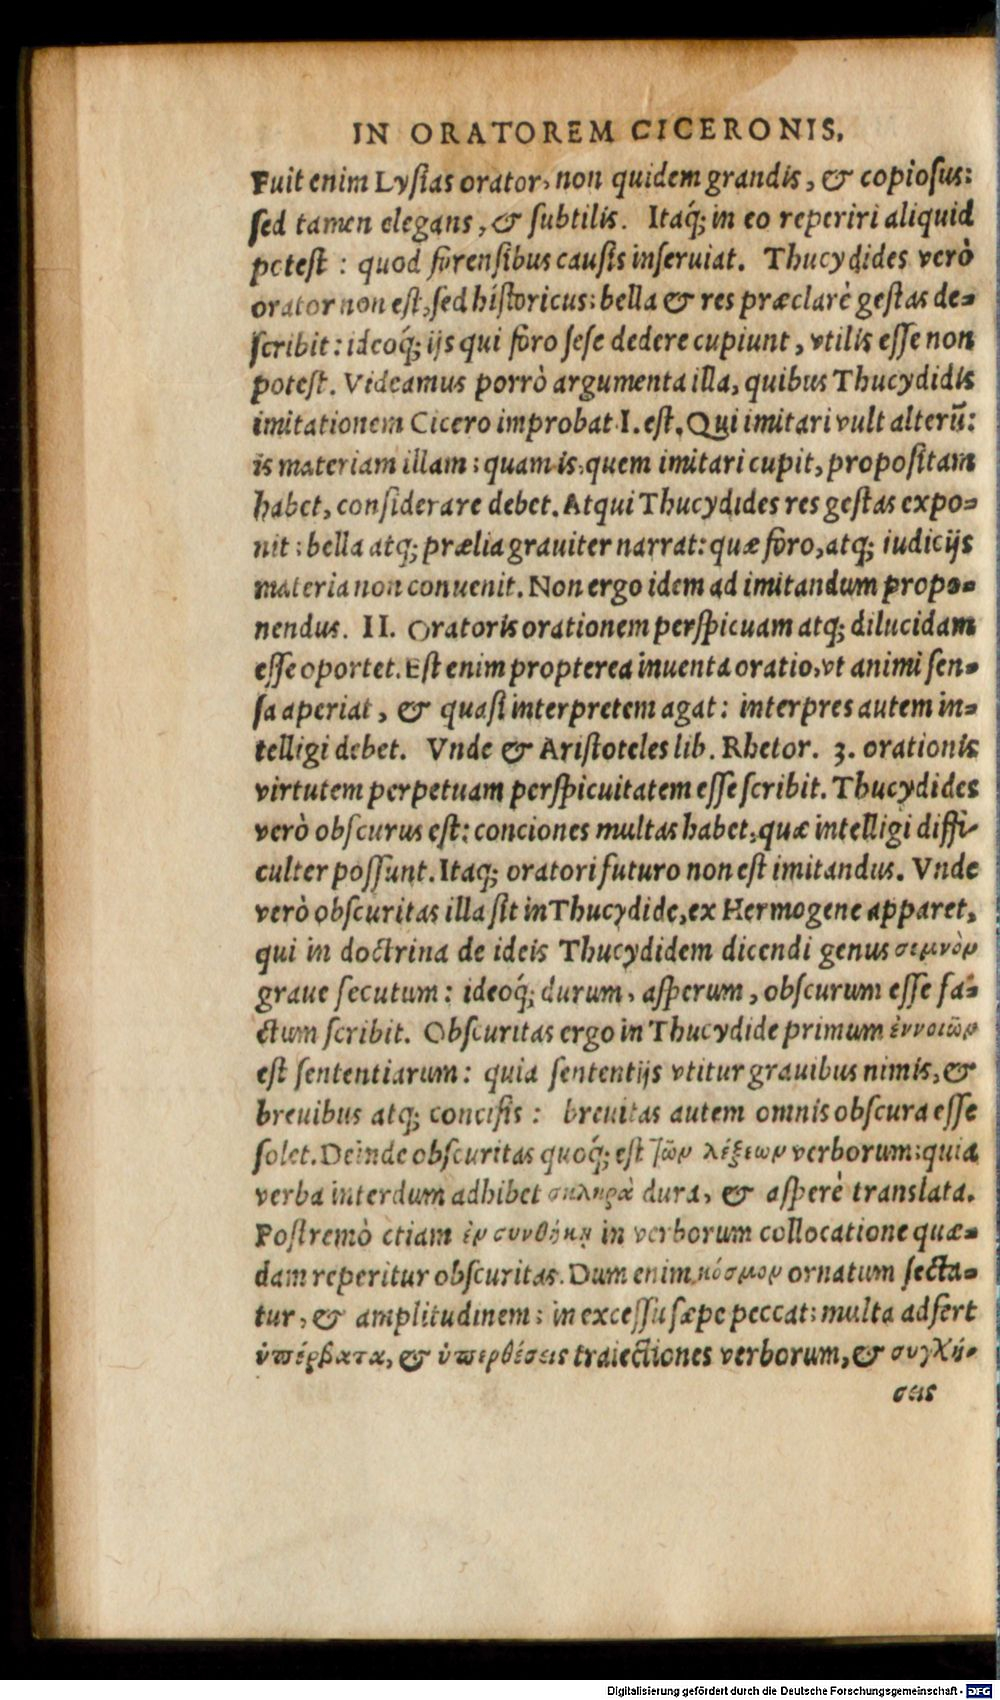 IN ORATOREM CICERONIS.
Fuit enim Lysias orator, non quidem grandis, & copiosus:
sed tamen elegans, & subtilis. Itaq́; in eo reperiri aliquid
potest: quod forensibus causis inseruiat. Thucydides verò
orator non est, sed historicus: bella & res præclarè gestas de-
scribit: ideoq́; ijs qui foro sese dedere cupiunt, vtilis esse non
potest. Videamus porrò argumenta illa, quibus Thucydidis
imitationem Cicero improbat. I. est. Qui imitari vult alterū:
is materiam illam: quam is, quem imitari cupit, propositam
habet, considerare debet. Atqui Thucydides res gestas expo-
nit: bella atq; prælia grauiter narrat: quæ foro, atq; iudicijs
materia non conuenit. Non ergo idem ad imitandum propo-
nendus. II. Oratoris orationem perspicuam atq; dilucidam
esse oportet. Est enim propterea inuenta oratio, vt animi sen-
sa aperiat, & quasi interpretem agat: interpres autem in-
telligi debet. Vnde & Aristoteles lib. Rhetor. 3. orationis
virtutem perpetuam perspicuitatem esse scribit. Thucydides
verò obscurus est: conciones multas habet, quæ intelligi diffi-
culter possunt. Itaq; oratori futuro non est imitandus. Vnde
verò obscuritas illa sit in Thucydide, ex Hermogene apparet,
qui in doctrina de ideis Thucydidem dicendi genus σεμνὸν
graue secutum: ideoq́; durum, asperum, obscurum esse fa-
ctum scribit. Obscuritas ergo in Thucydide primum ἐννοιῶν
est sententiarum: quia sententijs vtitur grauibus nimis, &
breuibus atq; concisis: breuitas autem omnis obscura esse
solet. Deinde obscuritas quoq́; est τῶν λέξεων verborum: quia
verba interdum adhibet σκληρὰ dura, & asperè translata.
Postremò etiam ἐν συνθήκῃ in verborum collocatione quæ-
dam reperitur obscuritas. Dum enim κόσμον ornatum secta-
tur, & amplitudinem: in excessu sæpe peccat: multa adfert
ὑπέρβατα, & ὑπερθέσεις traiectiones verborum, & συγχύ-
σεις
Digitalisierung gefördert durch die Deutsche Forschungsgemeinschaft - DFG